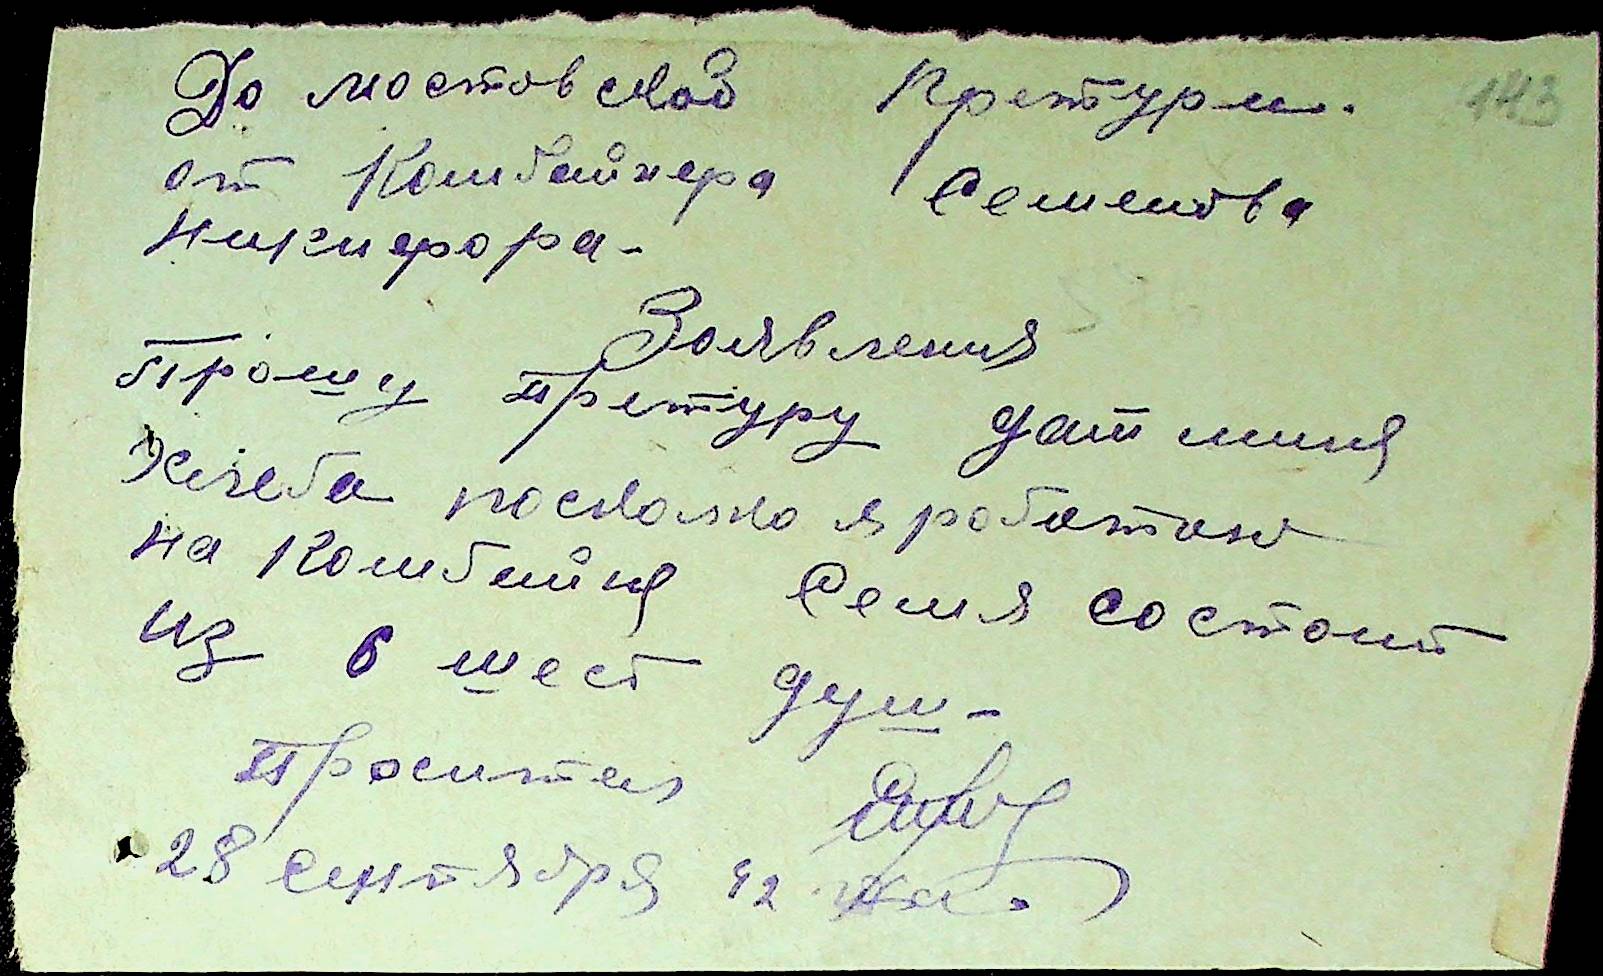 До мостовской Претури.
143
от Комбайнера Семенова
Никифора-
Заявления
Прошу претуру дат миня
Хлеба посколко я работаю
на Комбайня Семя состоит
из 6 шест душ-
Проситель
28 сентября 42